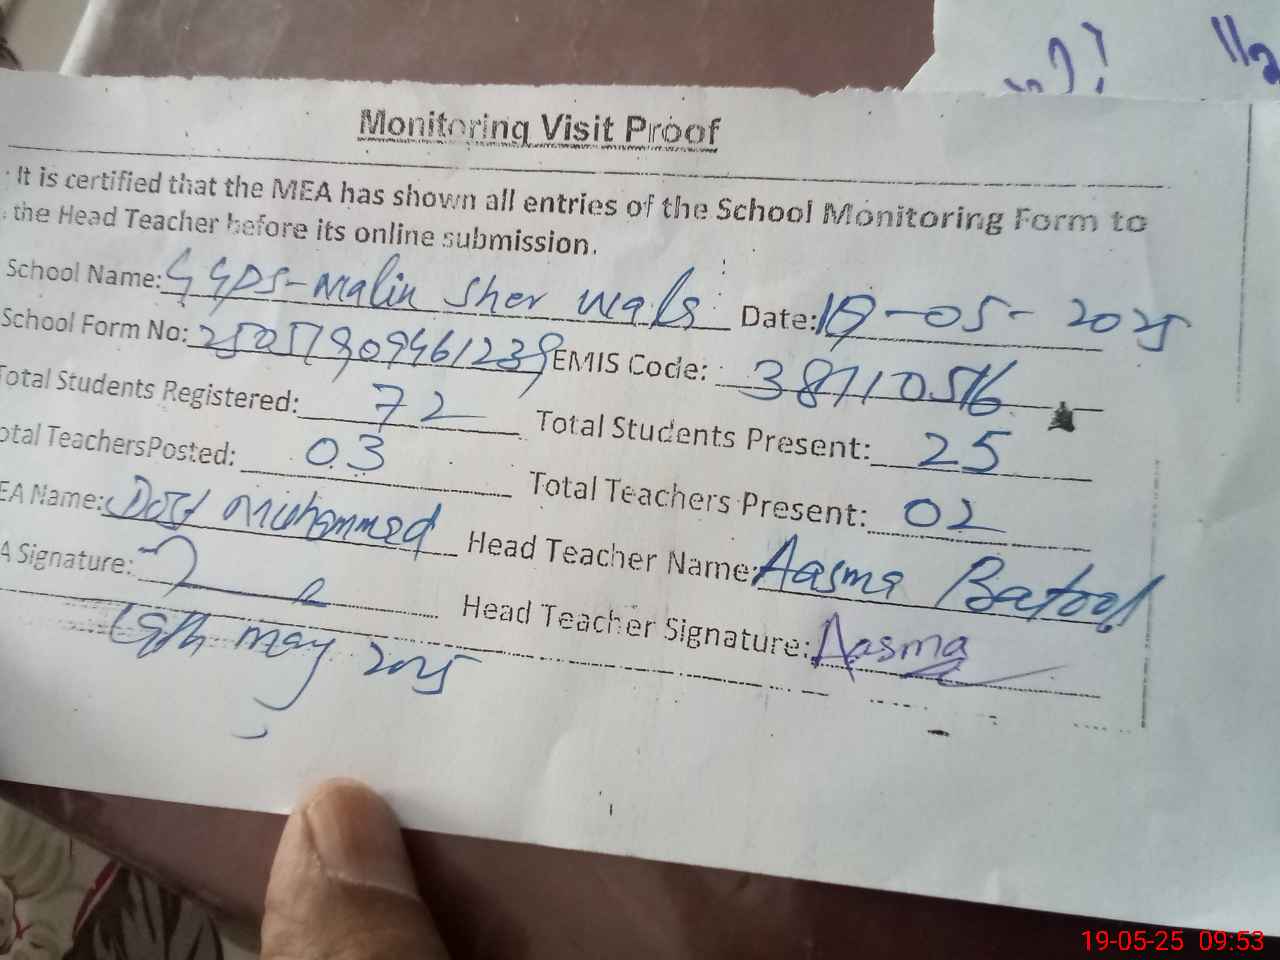 Monitoring Visit Proof
It is certified that the MEA has shown all entries of the School Monitoring Form to
the Head Teacher before its online submission.
School Name: GGPS-Malik Sher wala Date: 19-05-2025
School Form No: 25051909461239 EMIS Code: 38710516
Total Students Registered: 72 Total Students Present: 25
otal TeachersPosted: 03 Total Teachers Present: 02
EA Name: Dost Muhammed Head Teacher Name: Aasma Batool
A Signature: Head Teacher Signature: Aasma
19th may 2025
19-05-25 09:53